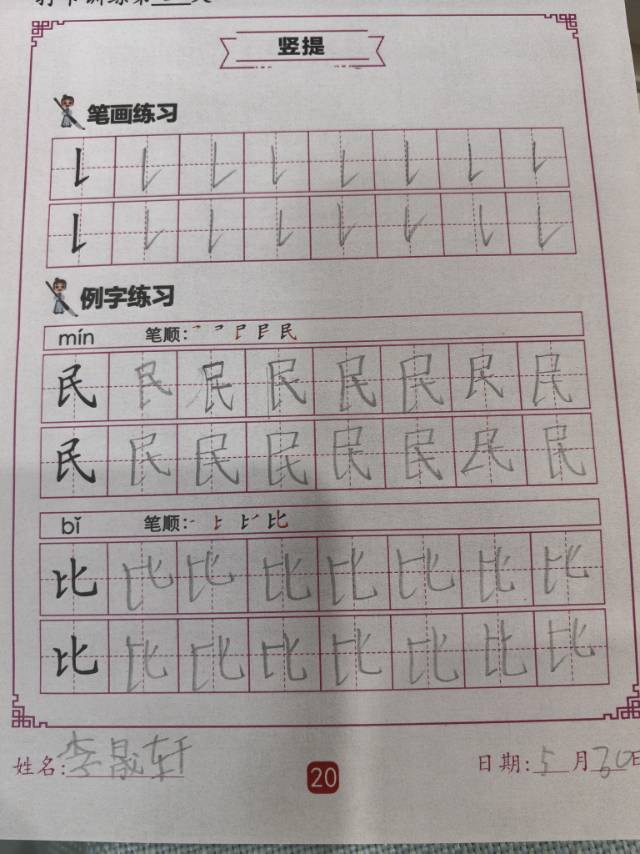 竖提
笔画练习
例字练习
mín 笔顺:
民 民 民 民 民 民 民 民
民 民 民 民 民 民 民 民
bǐ 笔顺:
比 比 比 比 比 比 比 比
比 比 比 比 比 比 比 比
姓名:李晟轩 20 日期:5月30日